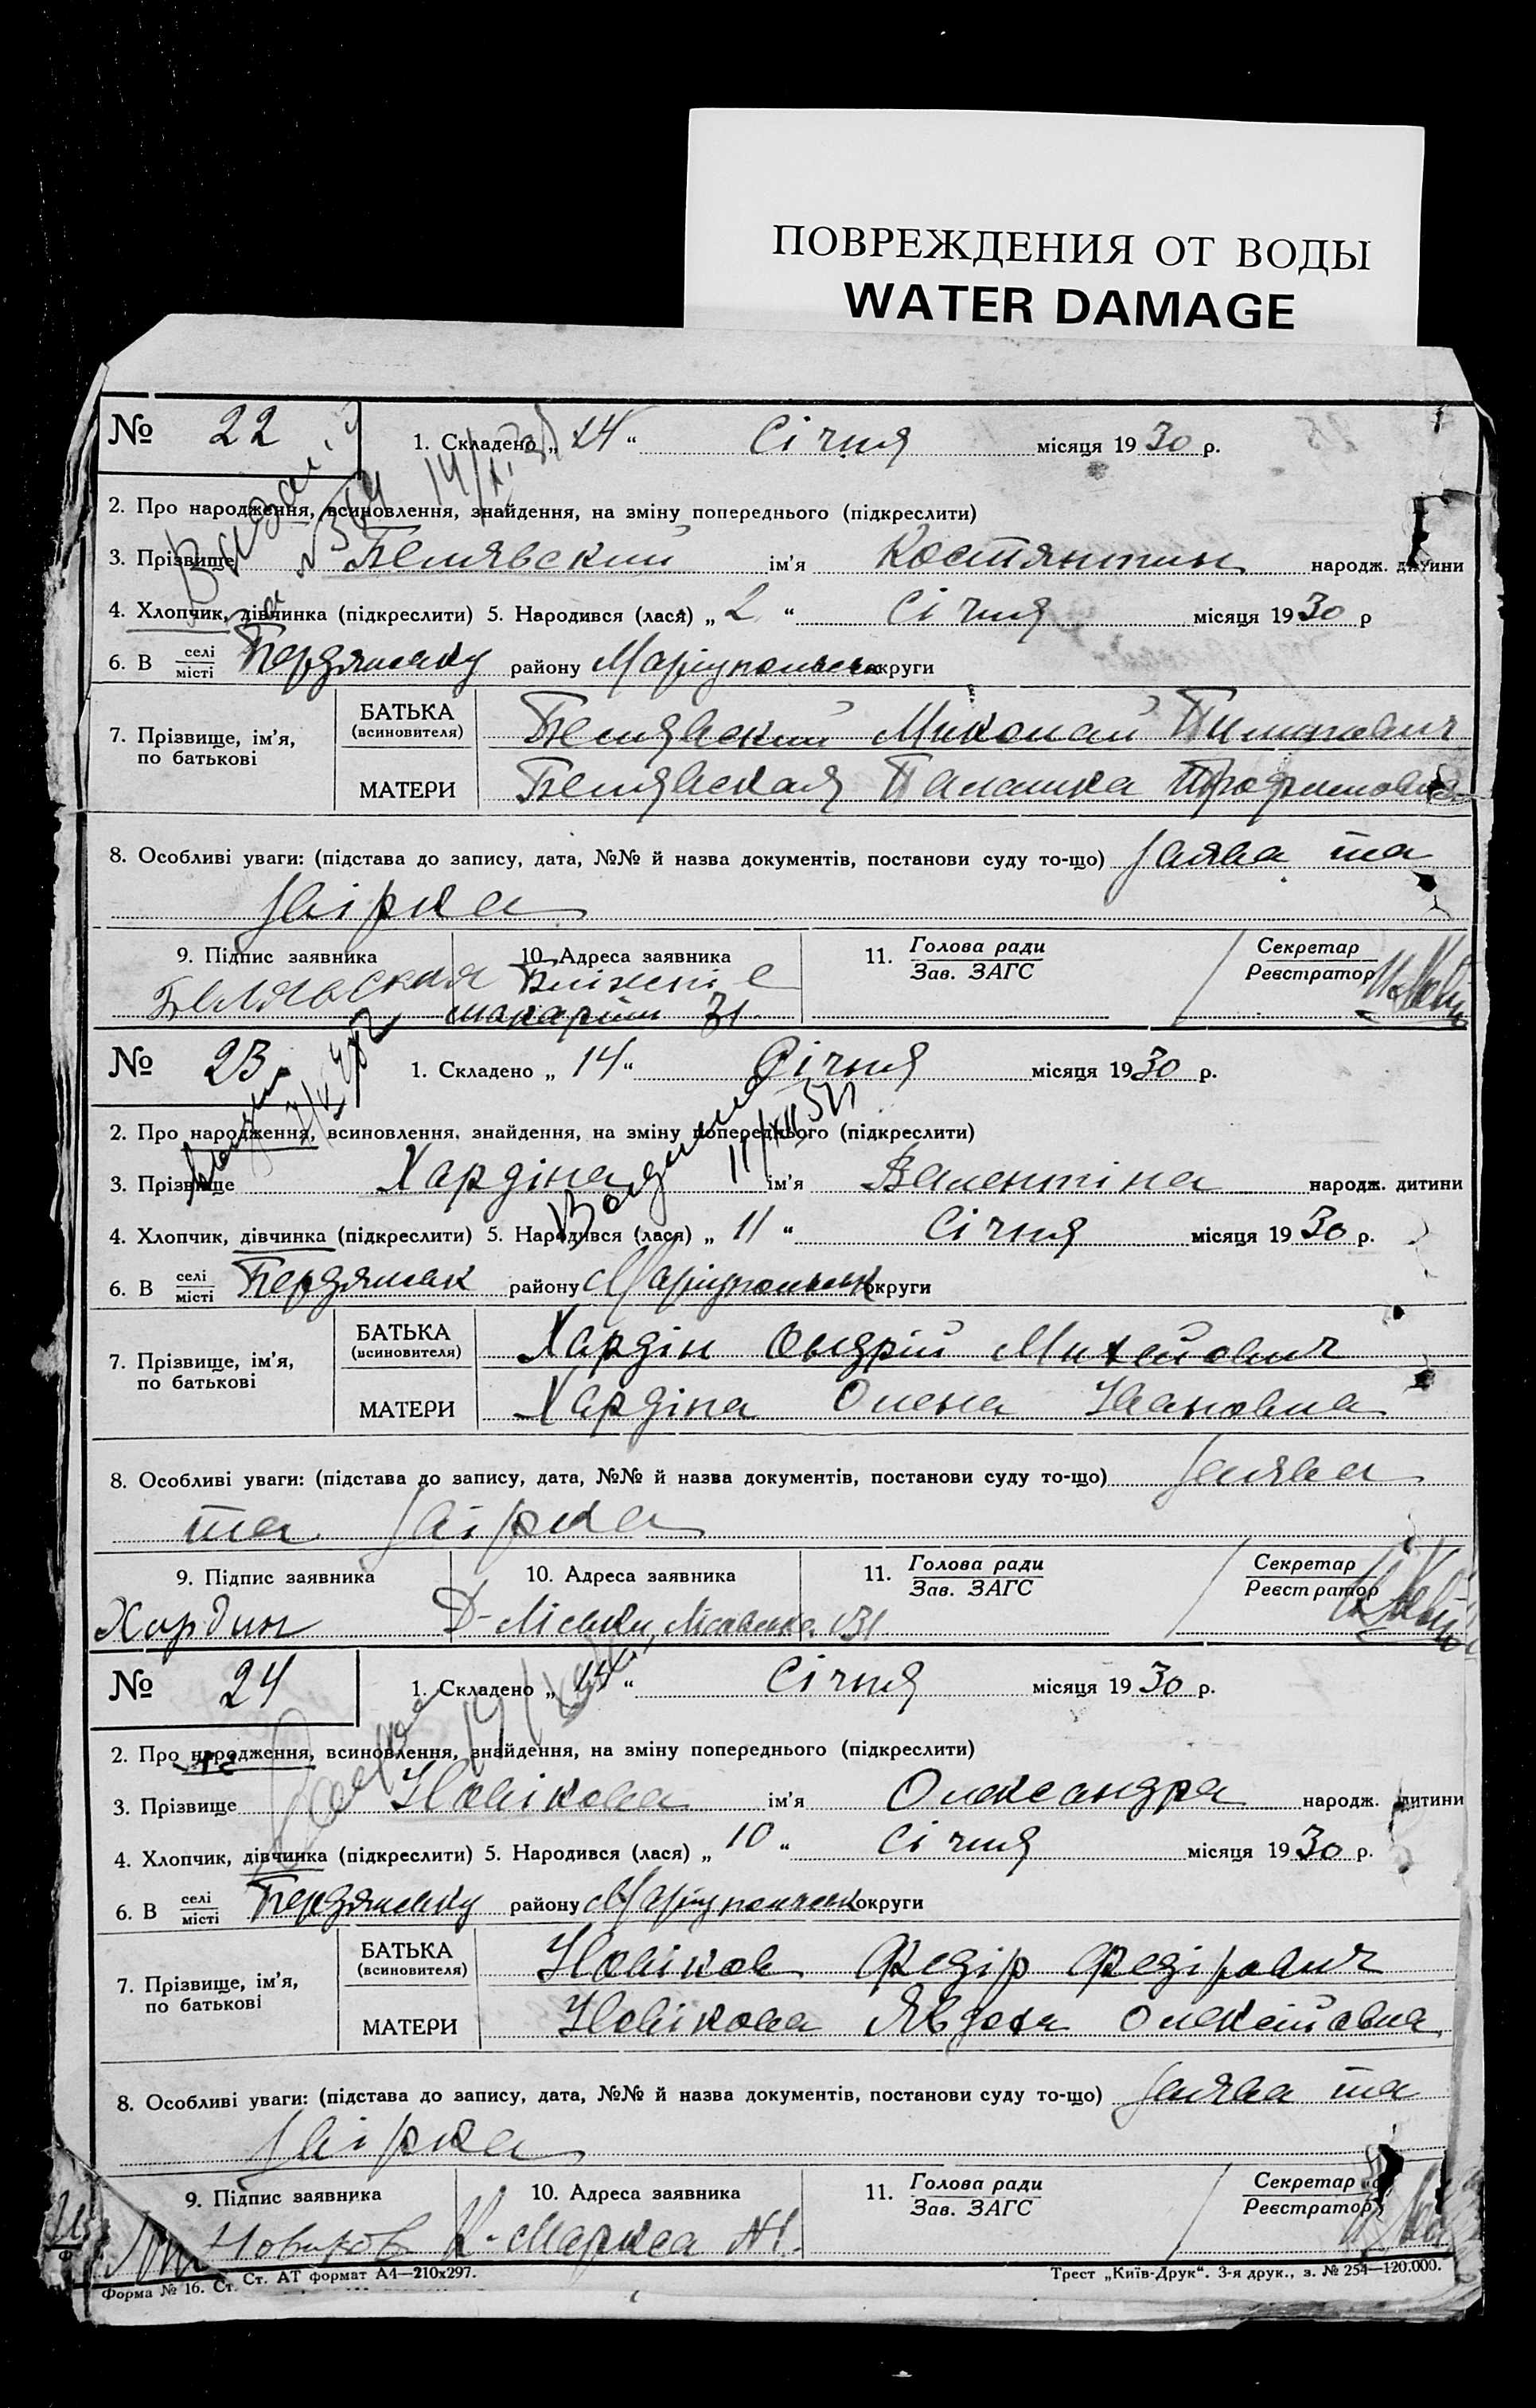 ПОВРЕЖДЕНИЯ ОТ ВОДЫ
WATER DAMAGE
№ 22
1. Складено „ 14 “ Січня місяця 1930 р.
2. Про народження, всиновлення, знайдення, на зміну попереднього (підкреслити)
3. Прізвище Белявский ім'я Костянтин народж. дитини
4. Хлопчик, дівчинка (підкреслити) 5. Народився (лася) „ 2 “ Січня місяця 1930 р
6. В селі місті Бердянську району Маріупольськ округи
7. Прізвище, ім'я, по батькові
БАТЬКА (всиновителя) Белявский Миколай
МАТЕРИ Белявская Палашка Трофимовна
8. Особливі уваги: (підстава до запису, дата, №№ й назва документів, постанови суду то-що) Заява та
звірка
9. Підпис заявника 10. Адреса заявника 11. Голова ради Зав. ЗАГС / Секретар Реєстратор
Белявская 31
№ 23
1. Складено „ 14 “ Січня місяця 1930 р.
2. Про народження, всиновлення, знайдення, на зміну попереднього (підкреслити)
3. Прізвище Хардіна ім'я Валентіна народж. дитини
4. Хлопчик, дівчинка (підкреслити) 5. Народився (лася) „ 11 “ Січня місяця 1930 р.
6. В селі місті Бердянськ району Маріупольськ округи
7. Прізвище, ім'я, по батькові
БАТЬКА (всиновителя) Хардін Ондрій Михейович
МАТЕРИ Хардіна Олена Ивановна
8. Особливі уваги: (підстава до запису, дата, №№ й назва документів, постанови суду то-що) Заява
та звірка
9. Підпис заявника 10. Адреса заявника 11. Голова ради Зав. ЗАГС / Секретар Реєстратор
Хардин
№ 24
1. Складено „ 14 “ Січня місяця 1930 р.
2. Про народження, всиновлення, знайдення, на зміну попереднього (підкреслити)
3. Прізвище Новікова ім'я Олександра народж. дитини
4. Хлопчик, дівчинка (підкреслити) 5. Народився (лася) „ 10 “ Січня місяця 1930 р.
6. В селі місті Бердянську району Маріупольськ округи
7. Прізвище, ім'я, по батькові
БАТЬКА (всиновителя) Новіков Федір Федірович
МАТЕРИ Новікова Явдоха Олексійовна
8. Особливі уваги: (підстава до запису, дата, №№ й назва документів, постанови суду то-що) Заява та
звірка
9. Підпис заявника 10. Адреса заявника 11. Голова ради Зав. ЗАГС / Секретар Реєстратор
Новиков К-Маркса
Форма № 16. Ст. Ст. АТ формат А4—210х297. Трест „Київ-Друк“. 3-я друк., з. № 254—120.000.